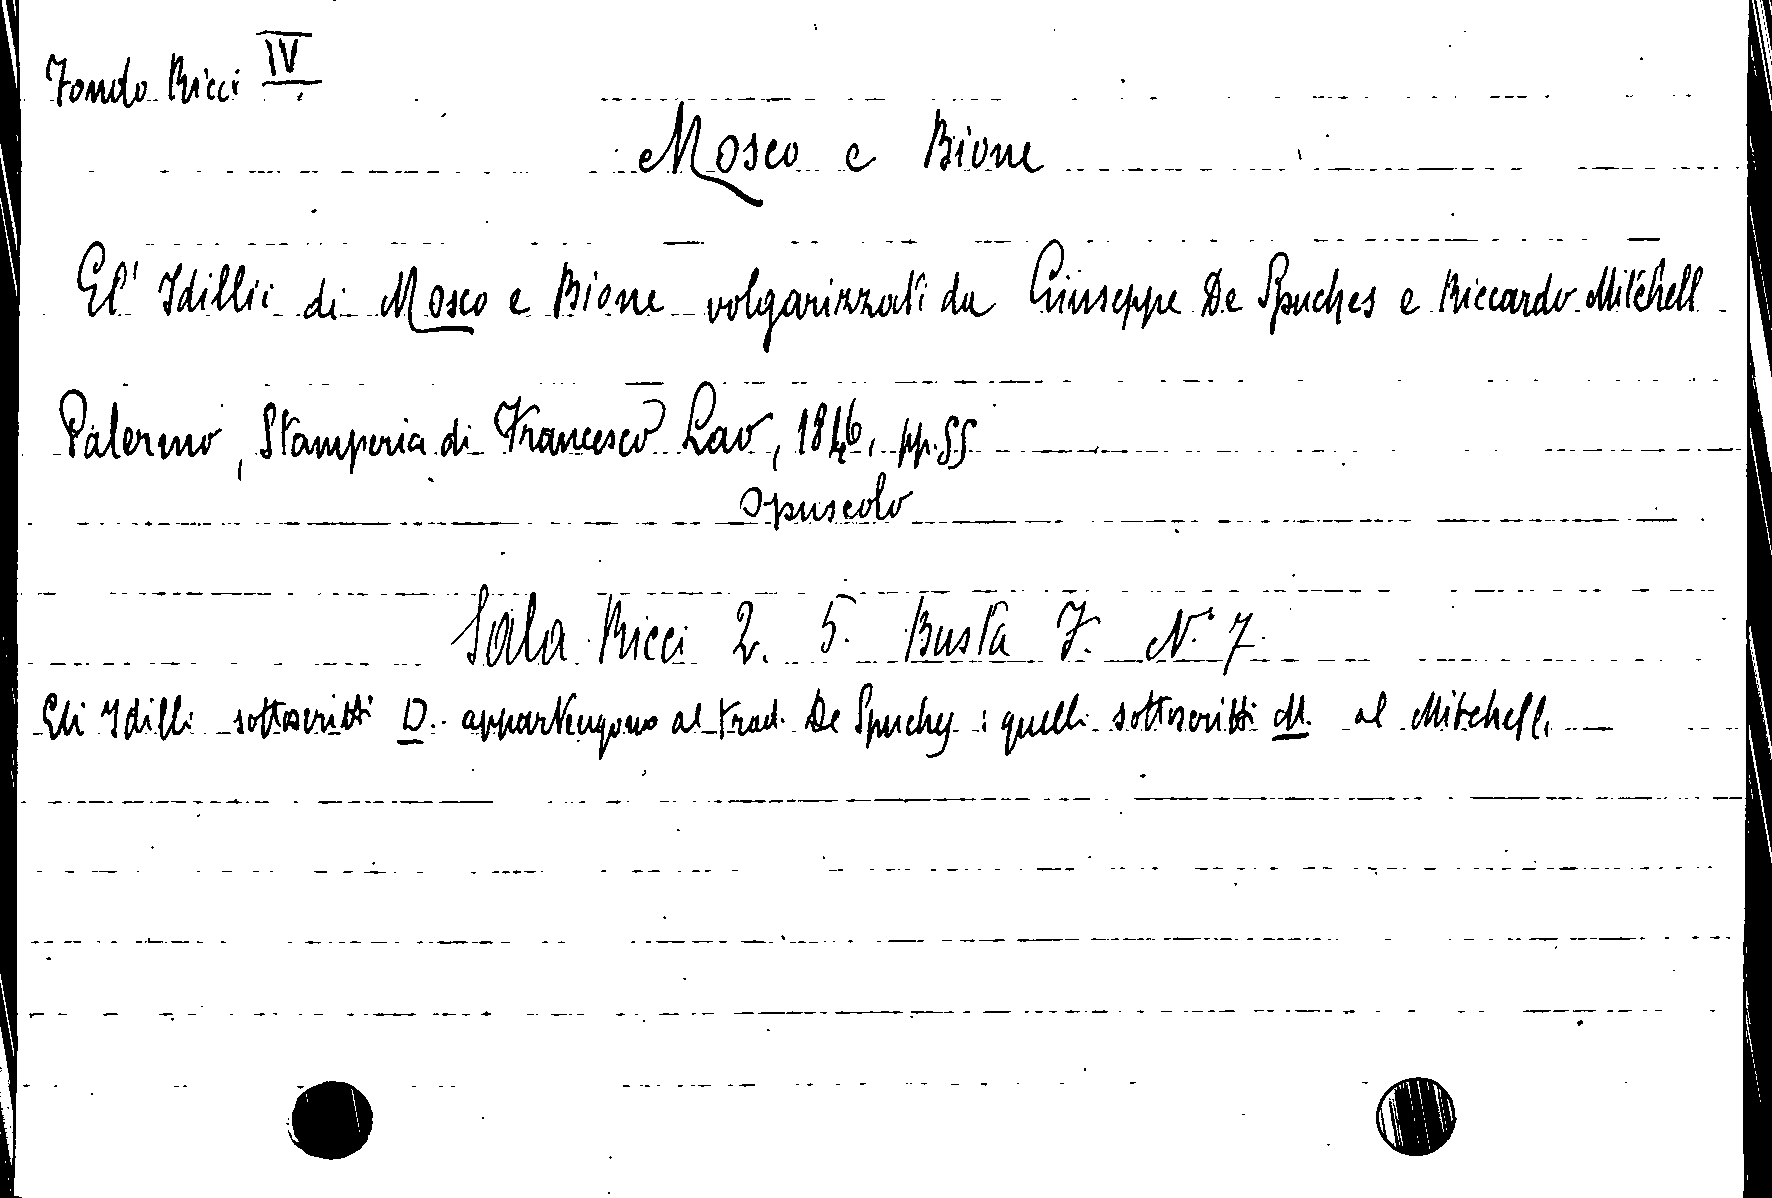 Fondo Ricci IV
Mosco e Bione
Gl' Idillii di Mosco e Bione volgarizzati da Giuseppe De Spuches e Riccardo Mitchell
Palermo, Stamperia di Francesco Lao, 1846, pp. 55
Opuscolo
Sala Ricci 2. 5. Busta F. N. 7
Gli Idilli sottoscritti D. appartengono al trad. De Spuches; quelli sottoscritti M. al Mitchell.